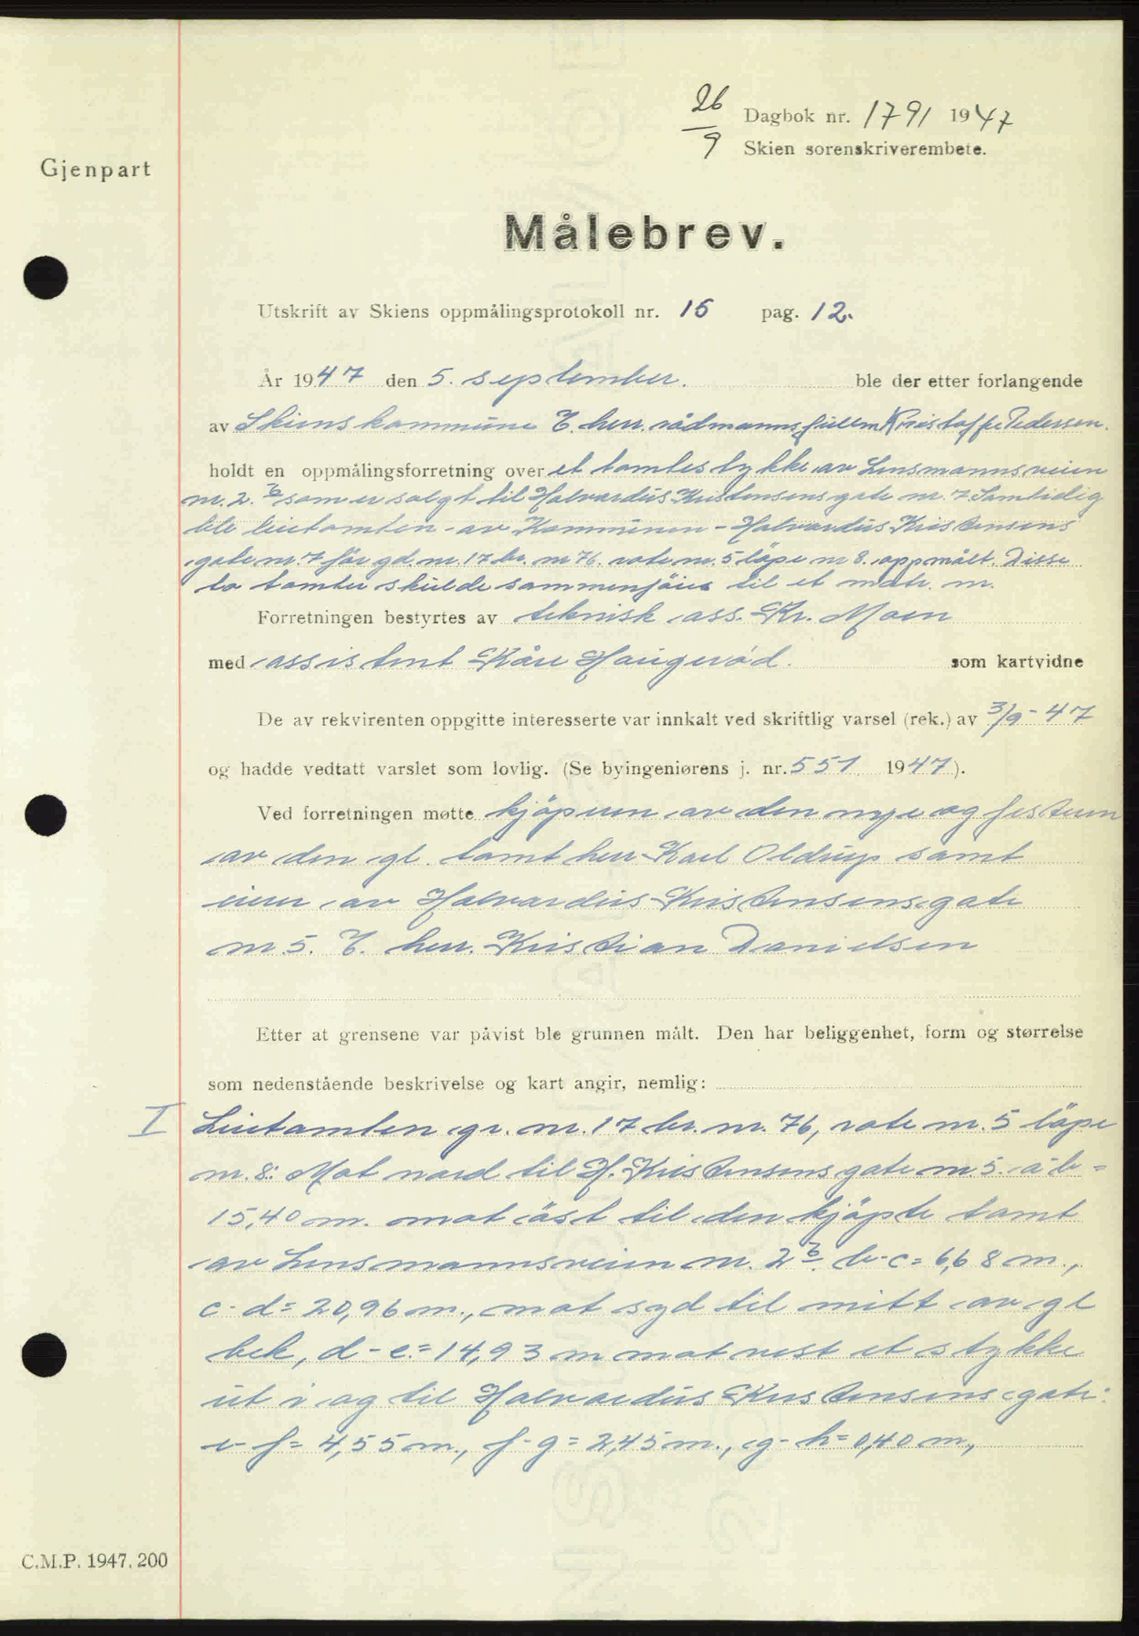 26/9 Dagbok nr. 1791 1947
Skien sorenskriverembete.
Gjenpart
Målebrev.
Utskrift av Skiens oppmålingsprotokoll nr. 15 pag. 12.
År 1947 den 5. september. ble der etter forlangende
av Skiens kommune v. herr. rådmannsfullm Kristoffer Pedersen.
holdt en oppmålingsforretning over et tomtestykke av Lensmannsveien
nr. 2 b som er solgt til Halvardus Kristensens gate nr. 7 Samtidig
ble leietomten - av Kommunen - Halvardus Kristensens
gate nr. 7 før gd. nr. 17 br. nr 76. rote nr. 5 løpe nr 8. oppmålt. Disse
to tomter skulde sammenføies til et matr. nr.
Forretningen bestyrtes av teknisk ass. Kr. Moen
med assistent Kåre Haugerød. som kartvidne
De av rekvirenten oppgitte interesserte var innkalt ved skriftlig varsel (rek.) av 3/9-47
og hadde vedtatt varslet som lovlig. (Se byingeniørens j. nr. 551 1947).
Ved forretningen møtte kjøperen av den nye og festeren
av den gl. tomt herr Karl Oldrup samt
eier av Halvardus Kristensens gate
nr 5. v. herr. Kristian Danielsen
Etter at grensene var påvist ble grunnen målt. Den har beliggenhet, form og størrelse
som nedenstående beskrivelse og kart angir, nemlig:
I Leietomten gr. nr. 17 br. nr. 76, rote nr. 5 løpe
nr. 8: Mot nord til H. Kristensens gate nr 5. a-b =
15,40 m. mot øst til den kjøpte tomt
av Lensmannsveien nr. 2 b. b-c = 6,68 m.,
c-d = 20,96 m., mot syd til mitt av gl
bek, d-e = 14,93 m mot vest et stykke
ut i og til Halvardus Kristensens gate:
e-f = 4,55 m., f-g = 2,45 m., g-h = 0,40 m,
C.M.P. 1947. 200